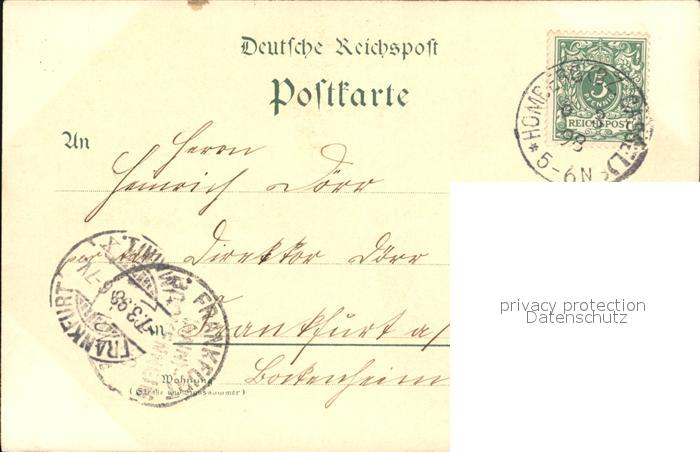 Deutsche Reichspost
Postkarte
5
PFENNIG
REICHSPOST
* HOMBERG
3
98
5-6N
An
Herrn
Heinrich Dörr
Direktor Dörr
in Frankfurt a/
Bockenheim
Wohnung
(Straße und Hausnummer)
FRANKFURT
7.3.98
privacy protection
Datenschutz